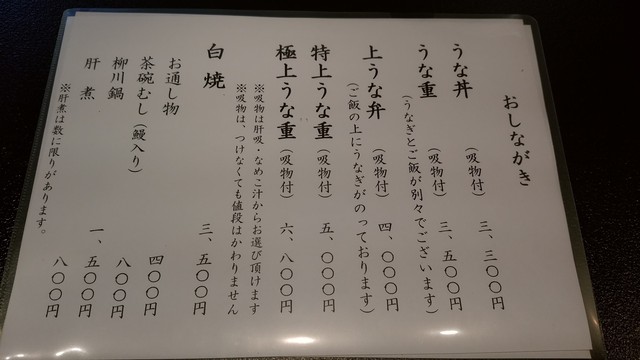 おしながき
うな丼 (吸物付) 三、三〇〇円
うな重 (吸物付) 三、五〇〇円
(うなぎとご飯が別々でございます)
上うな弁 (吸物付) 四、〇〇〇円
(ご飯の上にうなぎがのっております)
特上うな重 (吸物付) 五、〇〇〇円
極上うな重 (吸物付) 六、八〇〇円
※吸物は肝吸・なめこ汁からお選び頂けます
※吸物は、つけなくても値段はかわりません
白焼 三、五〇〇円
お通し物 四〇〇円
茶碗むし(鰻入り) 八〇〇円
柳川鍋 一、五〇〇円
肝煮 八〇〇円
※肝煮は数に限りがあります。